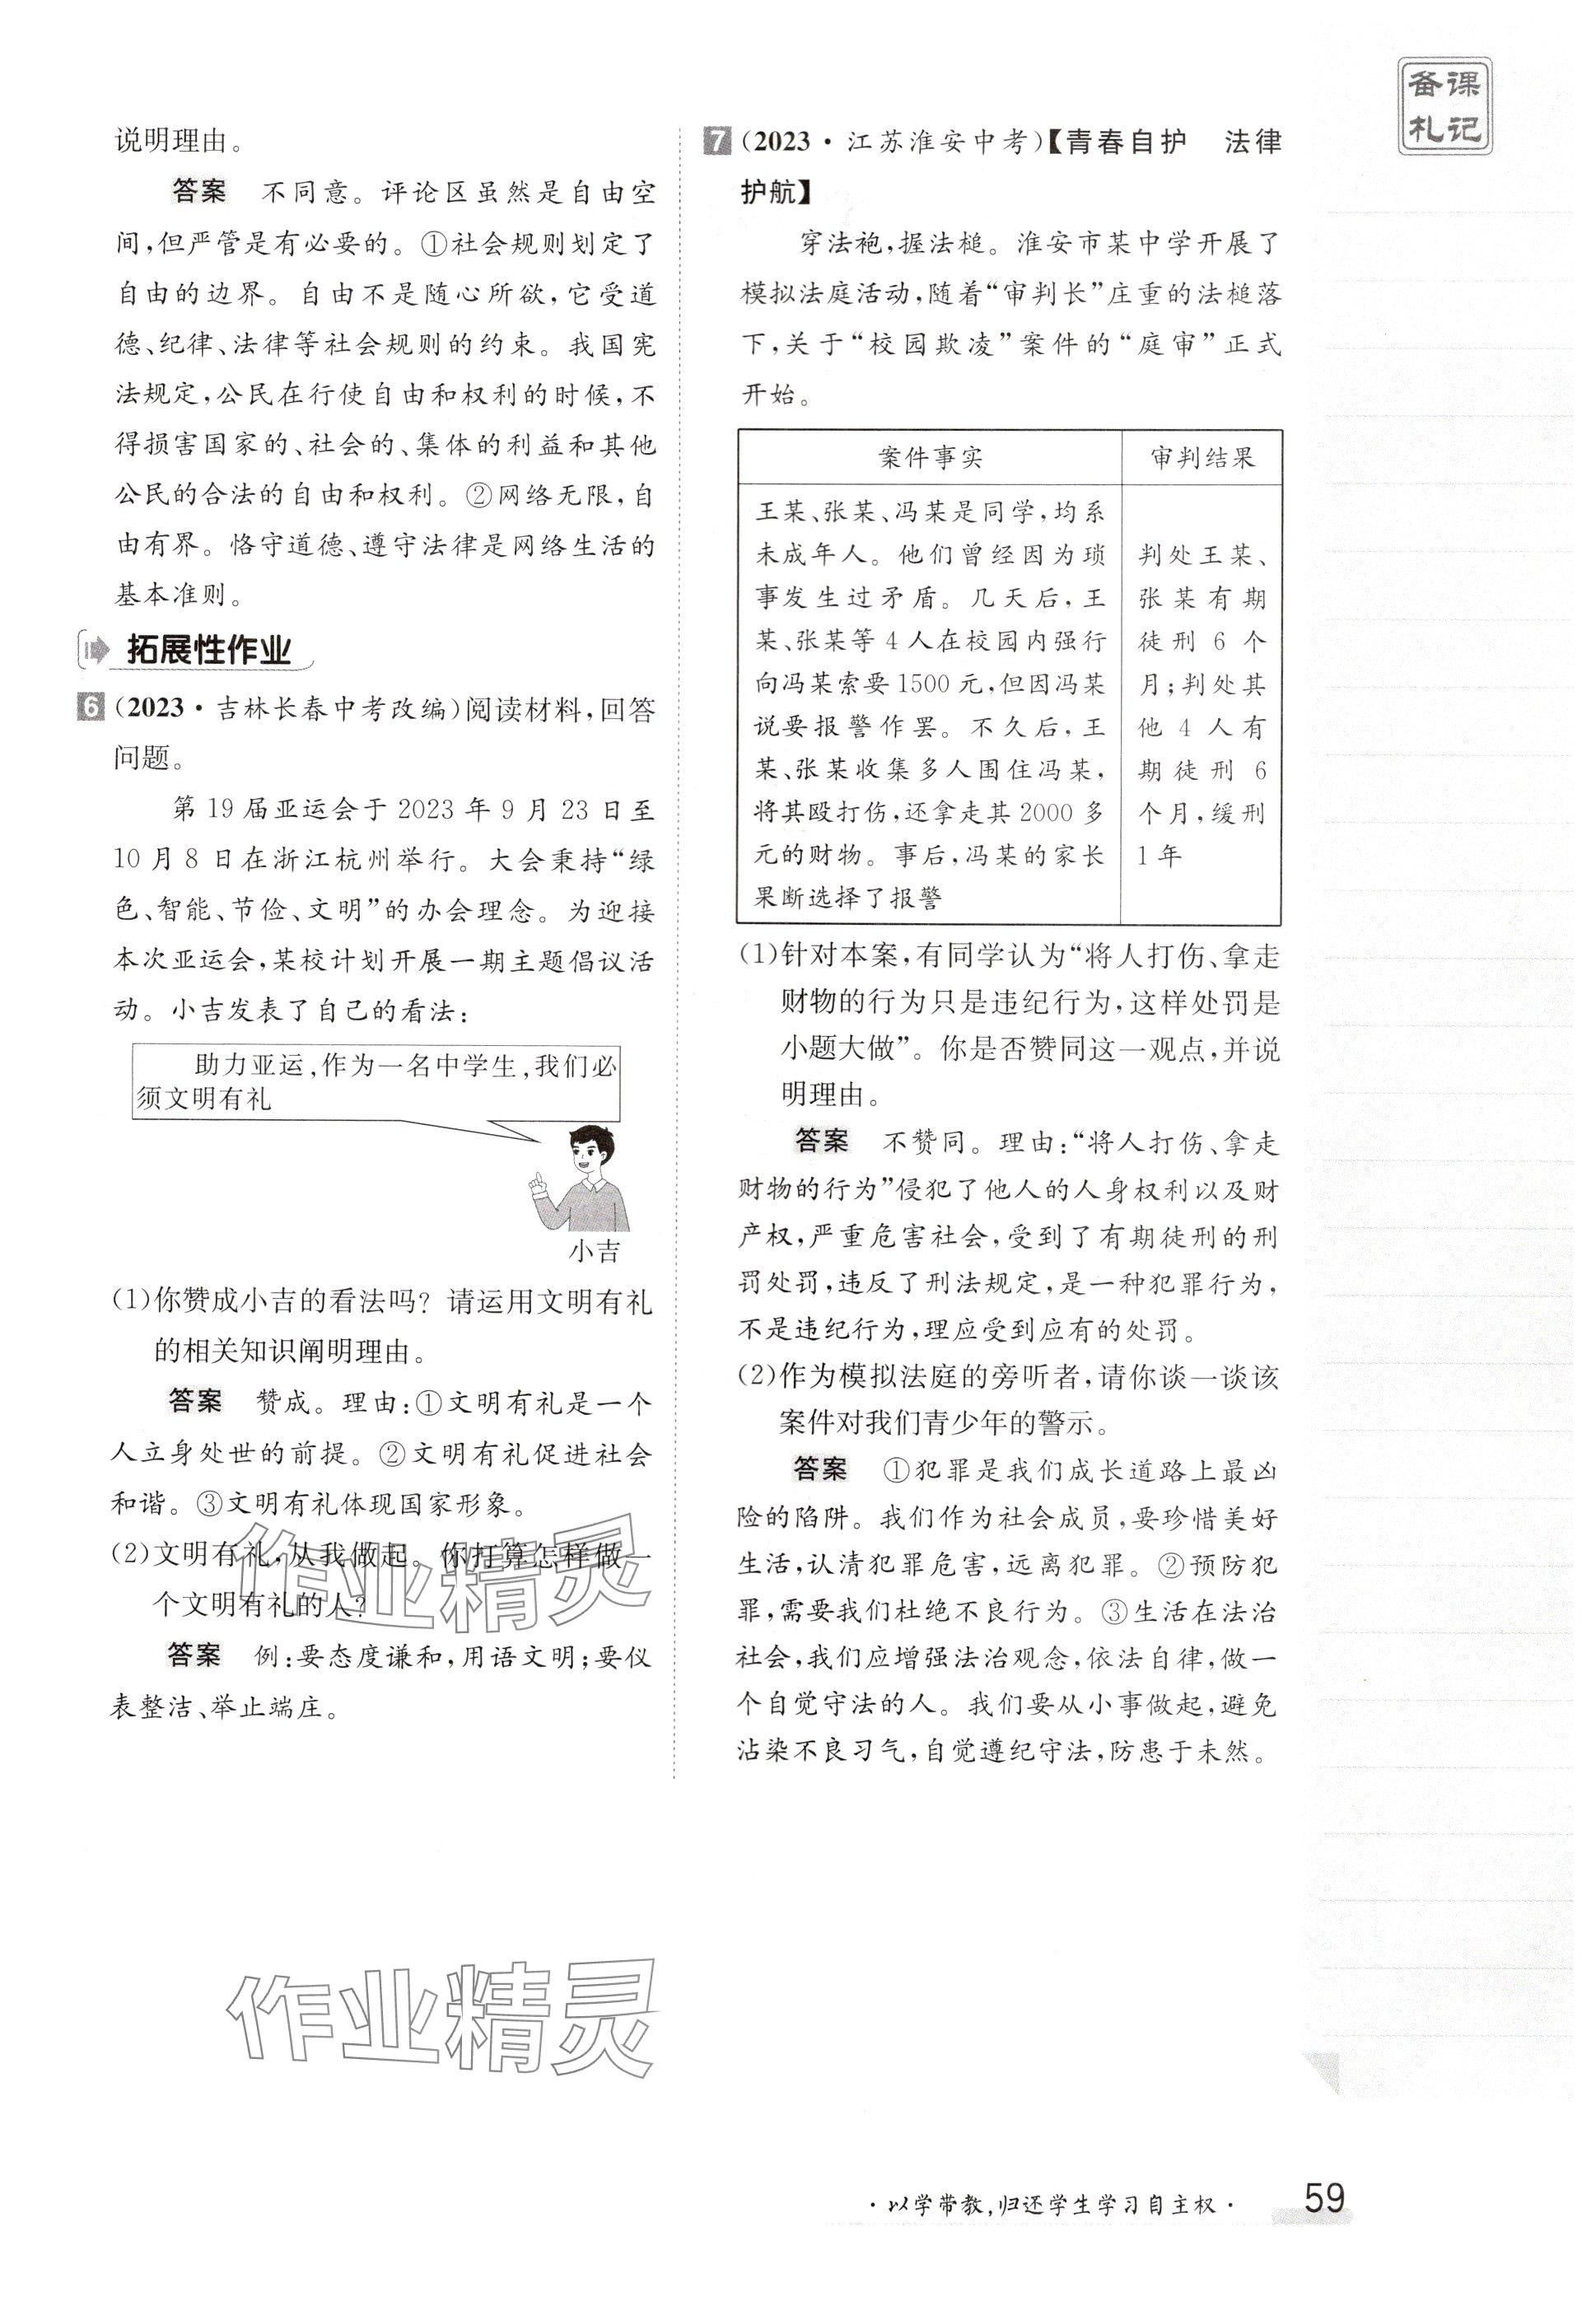 备课
札记
说明理由。
答案 不同意。评论区虽然是自由空
间,但严管是有必要的。①社会规则划定了
自由的边界。自由不是随心所欲,它受道
德、纪律、法律等社会规则的约束。我国宪
法规定,公民在行使自由和权利的时候,不
得损害国家的、社会的、集体的利益和其他
公民的合法的自由和权利。②网络无限,自
由有界。恪守道德、遵守法律是网络生活的
基本准则。
拓展性作业
6 (2023·吉林长春中考改编)阅读材料,回答
问题。
第 19 届亚运会于 2023 年 9 月 23 日至
10 月 8 日在浙江杭州举行。大会秉持“绿
色、智能、节俭、文明”的办会理念。为迎接
本次亚运会,某校计划开展一期主题倡议活
动。小吉发表了自己的看法:
助力亚运,作为一名中学生,我们必
须文明有礼
小吉
(1)你赞成小吉的看法吗?请运用文明有礼
的相关知识阐明理由。
答案 赞成。理由:①文明有礼是一个
人立身处世的前提。②文明有礼促进社会
和谐。③文明有礼体现国家形象。
(2)文明有礼,从我做起。你打算怎样做一
个文明有礼的人?
答案 例:要态度谦和,用语文明;要仪
表整洁、举止端庄。
7 (2023·江苏淮安中考)【青春自护 法律
护航】
穿法袍,握法槌。淮安市某中学开展了
模拟法庭活动,随着“审判长”庄重的法槌落
下,关于“校园欺凌”案件的“庭审”正式
开始。
案件事实
审判结果
王某、张某、冯某是同学,均系
未成年人。他们曾经因为琐
事发生过矛盾。几天后,王
某、张某等 4 人在校园内强行
向冯某索要1500元,但因冯某
说要报警作罢。不久后,王
某、张某收集多人围住冯某,
将其殴打伤,还拿走其2000多
元的财物。事后,冯某的家长
果断选择了报警
判处王某、
张某有期
徒刑 6 个
月;判处其
他 4 人有
期徒刑 6
个月,缓刑
1年
(1)针对本案,有同学认为“将人打伤、拿走
财物的行为只是违纪行为,这样处罚是
小题大做”。你是否赞同这一观点,并说
明理由。
答案 不赞同。理由:“将人打伤、拿走
财物的行为”侵犯了他人的人身权利以及财
产权,严重危害社会,受到了有期徒刑的刑
罚处罚,违反了刑法规定,是一种犯罪行为,
不是违纪行为,理应受到应有的处罚。
(2)作为模拟法庭的旁听者,请你谈一谈该
案件对我们青少年的警示。
答案 ①犯罪是我们成长道路上最凶
险的陷阱。我们作为社会成员,要珍惜美好
生活,认清犯罪危害,远离犯罪。②预防犯
罪,需要我们杜绝不良行为。③生活在法治
社会,我们应增强法治观念,依法自律,做一
个自觉守法的人。我们要从小事做起,避免
沾染不良习气,自觉遵纪守法,防患于未然。
作业精灵
作业精灵
·以学带教,归还学生学习自主权·
59